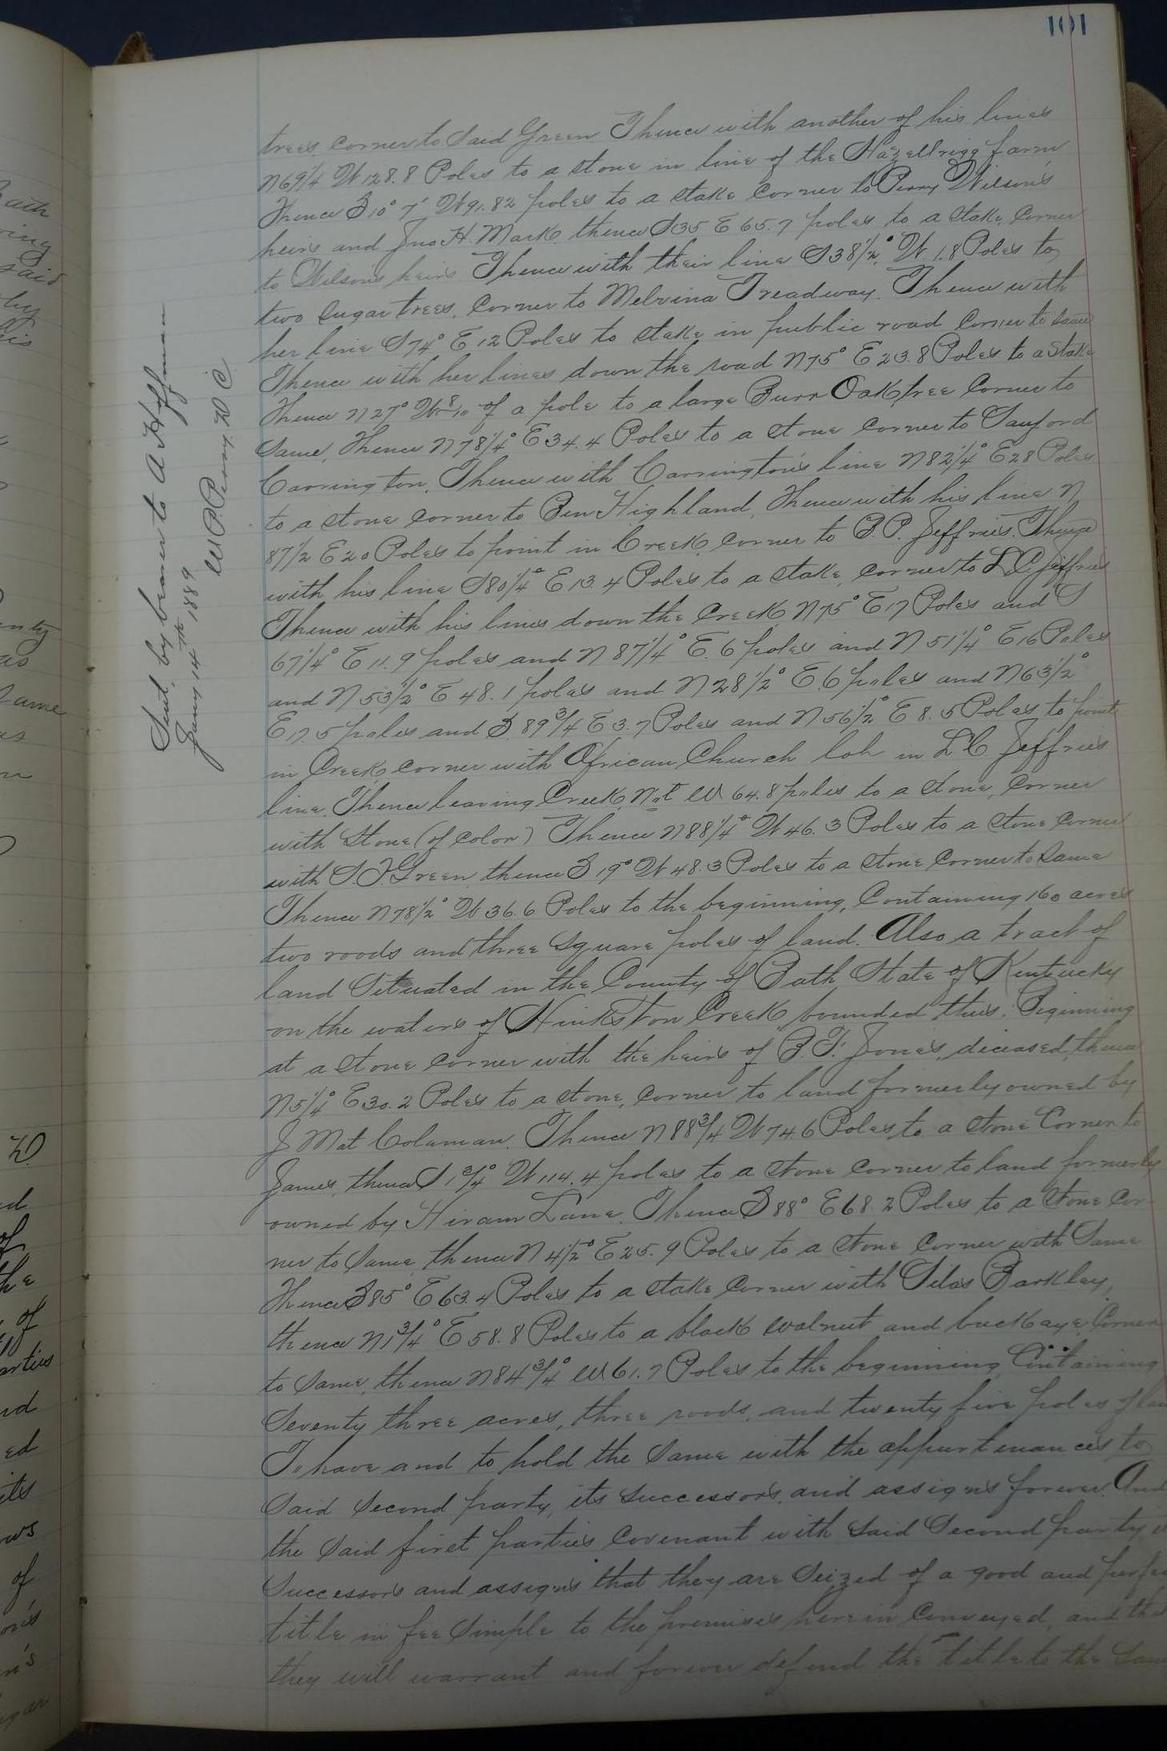 101
trees, corner to Said Green Thence with another of his lines
N 69 1/4 W 128.8 Poles to a stone in line of the Hazellrigg farm
Thence S 10° 7' W 91.82 poles to a stake corner to Perry Wilson's
heirs and Jno H. Mark thence S 35 E 65.7 poles to a stake, corner
to Wilsons heirs Thence with their line S 38 1/2° W 1.8 Poles to
two sugar trees, corner to Melvina Treadway. Thence with
her line S 74° E 12 Poles to stake in public road corner to same
Thence with her lines down the road N 75° E 23.8 Poles to a stake
Thence N 27° W 8/10 of a pole to a large Burr Oak tree corner to
Same, Thence N 78 1/4° E 34.4 Poles to a stone corner to Sanford
Carrington, Thence with Carrington's line N 82 1/4° E 28 Poles
to a stone corner to Ben Highland, Thence with his line N
87 1/2 E 20 Poles to point in Creek corner to B.P. Jeffries. Thence
with his line S 80 1/4° E 13.4 Poles to a stake, corner to L C Jeffries
Thence with his lines down the Creek N 75° E 17 Poles and S
67 1/4° E 11.9 poles and N 87 1/4° E. 6 poles and N 51 1/4° E 16 Poles
and N 53 1/2° E 48.1 poles and N 28 1/2° E. 6 poles and N 63 1/2°
E 17.5 poles and S. 89 3/4 E 3.7 Poles and N 56 1/2° E 8.5 Poles to point
in Creek corner with African Church lot in L C Jeffries
line, Thence leaving Creek W 64.8 poles to a stone, corner
with Stone (of color) Thence N 88 1/4° W 46.3 Poles to a stone corner
with Green thence S 19° W 48.3 Poles to a stone corner to Same
Thence N 78 1/2° W 36.6 Poles to the beginning, Containing 160 acres
two roods and three square poles of land. Also a tract of
land Situated in the County of Bath State of Kentucky
on the waters of Hinkston Creek, bounded thus: Beginning
at a stone corner with the heirs of B. F. Jones, deceased, thence
N 5 1/4° E 30.2 Poles to a stone, corner to land formerly owned by
J Mat Coleman. Thence N 88 3/4 W 74.6 Poles to a stone Corner to
James, thence S 1 3/4° W 114.4 poles to a stone corner to land formerly
owned by Hiram Lane. Thence S 88° E 68.2 Poles to a stone cor-
ner to Same, thence N 4 1/2° E 25.9 Poles to a stone corner with Same
Thence S 85° E 63.4 Poles to a stake corner with Silas Barkley,
thence N 1 3/4° E 58.8 Poles to a black walnut and buckeye, Corner
to Same, thence N 84 3/4° W 61.7 Poles to the beginning Containing
Seventy three acres, three roods, and twenty five poles of
To have and to hold the Same with the appurtenances to
Said Second party, its successors, and assigns forever. And
the Said first parties covenant with Said Second party
Successors and assigns that they are Seized of a good and
title in fee Simple to the premises herein conveyed, and
they will warrant and forever defend the title to the
Sent by bearer to A Hoffman
Jany 14th 1889
W P Perry D C